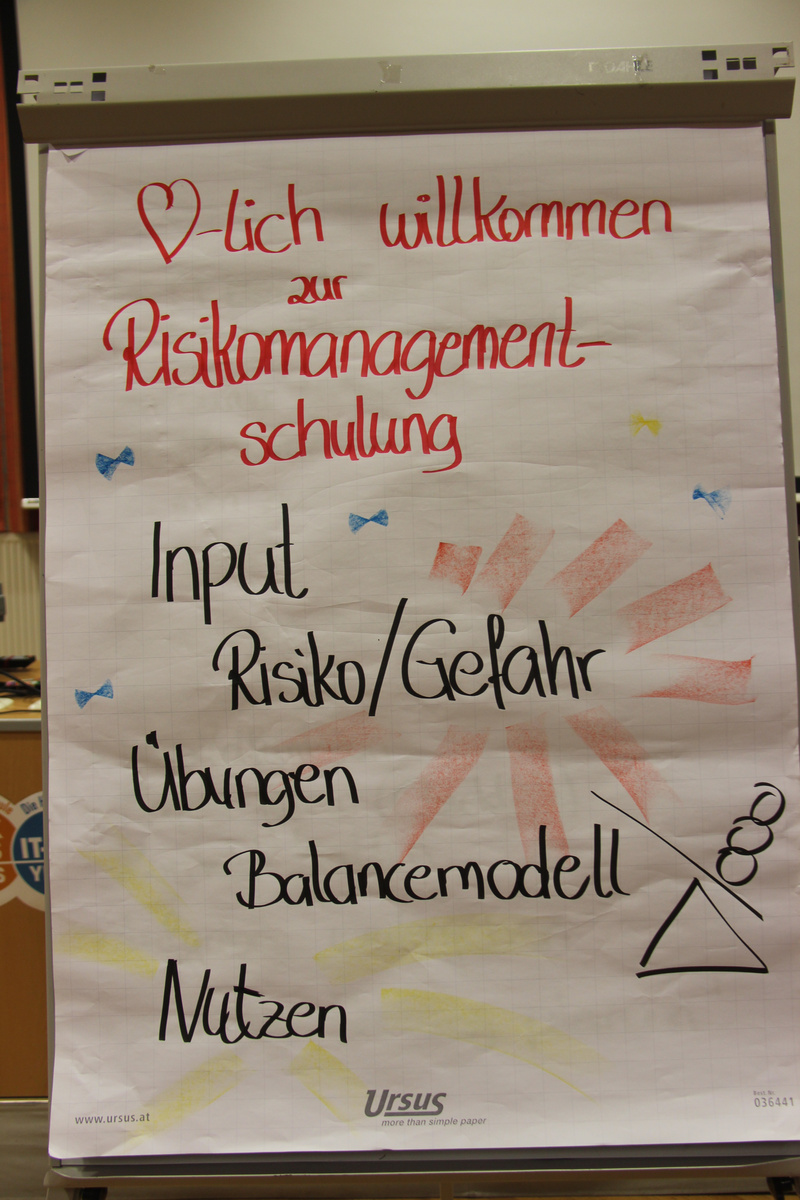 ♡-lich willkommen
zur
Risikomanagement-
schulung
Input
Risiko/Gefahr
Übungen
Balancemodell
Nutzen
www.ursus.at
Ursus
more than simple paper
Best. Nr.
036441